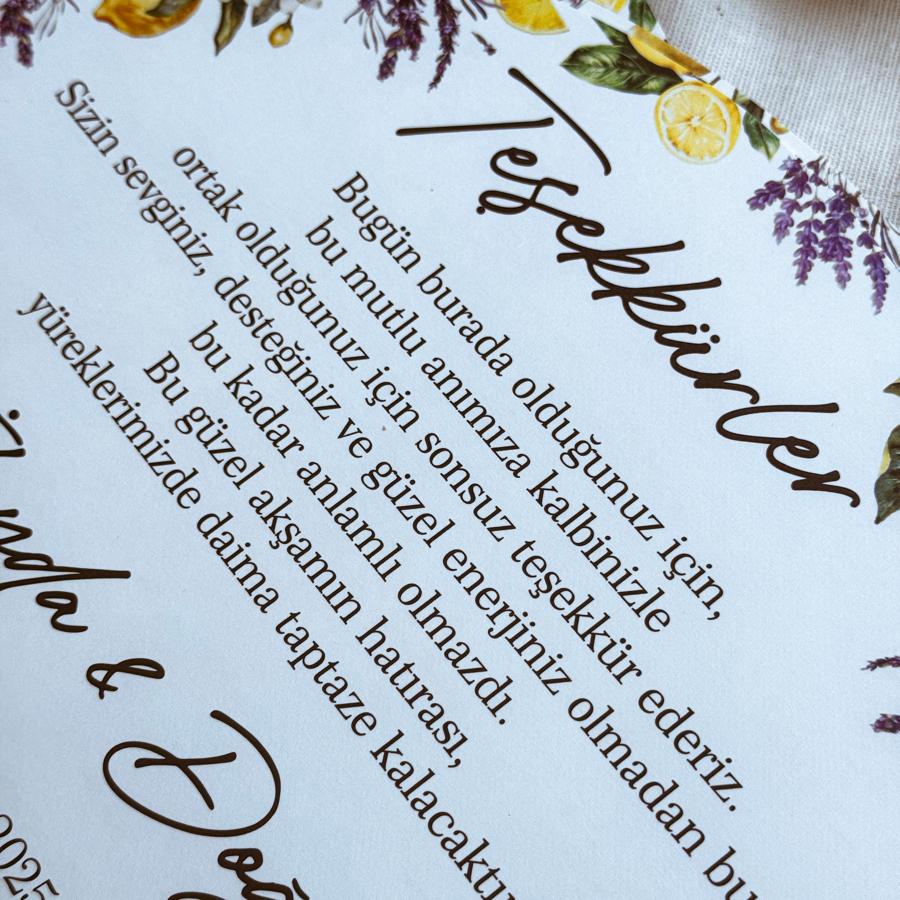 Teşekkürler
Bugün burada olduğunuz için,
bu mutlu anımıza kalbinizle
ortak olduğunuz için sonsuz teşekkür ederiz.
Sizin sevginiz, desteğiniz ve güzel enerjiniz olmadan bu
bu kadar anlamlı olmazdı.
Bu güzel akşamın hatırası,
yüreklerimizde daima taptaze kalacaktı
&
2025